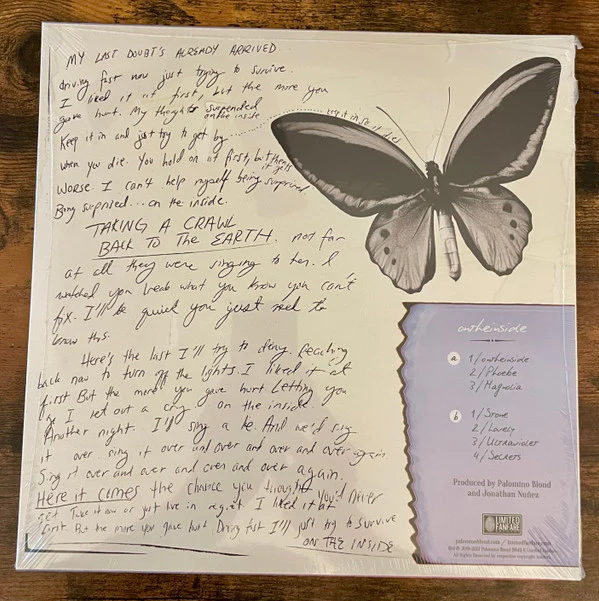 MY LAST DOUBT'S ALREADY ARRIVED
driving fast now just trying to survive.
I liked it at first, but the more you
gave hurt. My thoughts suspended
on the inside
Keep it in and just try to get by
keep it in
when you die. You hold on at first, but then
it gets
worse. I can't help myself being surprised
Being suprised... on the inside.
TAKING A CRAWL
BACK TO THE EARTH. not far
at all they were singing to her. I
watched you break what you know you can't
fix. I'll be quick you just need to
know this.
Here's the last I'll try to deny. Reaching
back now to turn off the lights. I liked it at
first But the more you gave hurt Letting you
go I let out a cry on the inside.
Another night. I'd sing a lie. And we'd sing
it over sing it over and over and over and over again
Sing it over and over and over and over again.
Here it comes the chance you thought You'd Never
get Take it now or just live in regret. I liked it at
first. But the more you gave hurt Driving fast I'll just try to survive
ON THE INSIDE
ontheinside
a 1/ontheinside
2/Phoebe
3/Magnolia
b 1/Stone
2/Lovely
3/Ultraviolet
4/Secrets
Produced by Palomino Blond
and Jonathan Nuñez
LIMITED
FANFARE
palominoblond.com / limitedfanfare.com